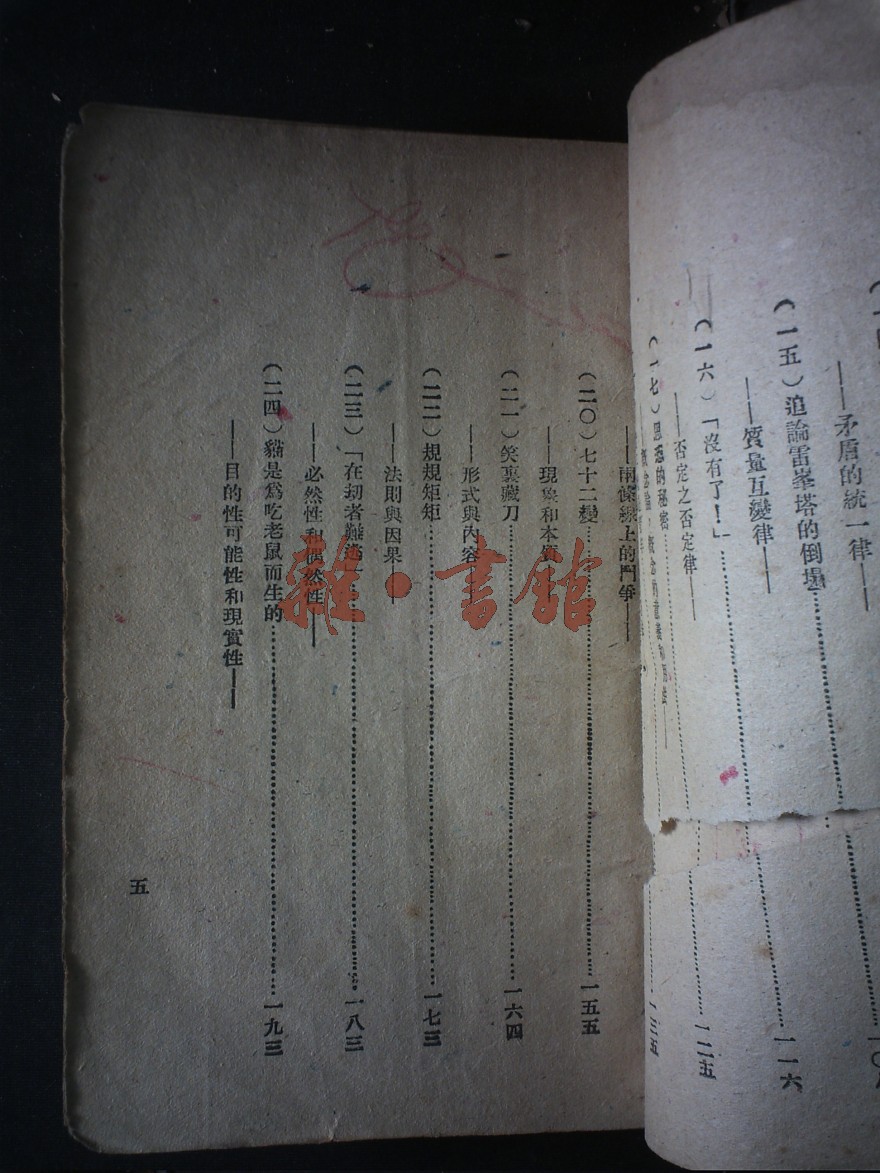 ——矛盾的統一律——
(一五)追論雷峯塔的倒塌……一一六
——質量互變律——
(一六)「沒有了！」……一二五
——否定之否定律——
(一七)思惟的秘密……一三五
——兩條線上的鬥爭——
(二〇)七十二變……一五五
——現象和本質——
(二一)笑裏藏刀……一六四
——形式與內容——
(二二)規規矩矩……一七三
——法則與因果——
(二三)「在劫者難逃」……一八三
——必然性和偶然性——
(二四)貓是爲吃老鼠而生的……一九三
——目的性可能性和現實性——
五
雜·書館